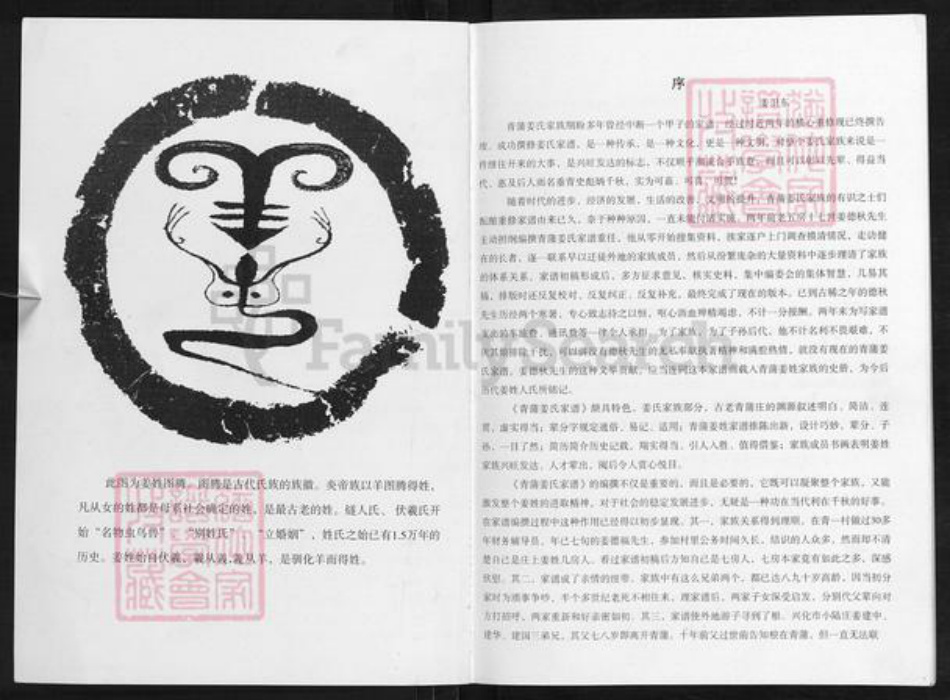 此图为姜姓图腾。图腾是古代氏族的族徽。炎帝族以羊图腾得姓,
凡从女的姓都是母系社会确定的姓,是最古老的姓。燧人氏、伏羲氏开
始“名物虫鸟兽”、“别姓氏”、“立婚姻”,姓氏之始已有1.5万年的
历史。姜姓始自伏羲,羲从羊,是驯化羊而得姓。
序
姜卫东
青蒲姜氏家族期盼多年曾经中断一个甲子的家谱,经过付近两年的精心重修现已终撰告
竣。成功撰修姜氏家谱,是一种传承,是一种文化,更是一种文明,对整个姜氏家族来说是一
件继往开来的大事,是兴旺发达的标志,不仅顺乎潮流合乎族意,而且可以彰以先辈,得益当
代,惠及后人而名垂青史彪炳千秋,实为可嘉、可喜、可贺!
随着时代的进步,经济的发展,生活的改善,文明的提升,青蒲姜氏家族的有识之士们
酝酿重修家谱由来已久,奈于种种原因,一直未能付诸实施。两年前老五房十七世姜德秋先生
主动担纲编撰青蒲姜氏家谱重任,他从零开始搜集资料,挨家逐户上门调查摸清情况,走访健
在的长者,逐一联系早以迁徙外地的家族成员,然后从纷繁庞杂的大量资料中逐步理清了家族
的体系关系。家谱初稿形成后,多方征求意见,核实史料,集中编委会的集体智慧,几易其
稿,排版时还反复校对、反复纠正、反复补充,最终完成了现在的版本。已到古稀之年的德秋
先生历经两个寒暑,专心致志持之以恒,呕心沥血殚精竭虑,不计一分报酬,两年来为写家谱
支出的车旅费、通讯费等一律个人承担。为了家族,为了子孙后代,他不计名利不畏艰难,不
厌其烦排除干扰,可以讲没有德秋先生的无私奉献执著精神和满腔热情,就没有现在的青蒲姜
氏家谱。姜德秋先生的这种文举贡献,应当连同这本家谱镌载入青蒲姜姓家族的史册,为今后
历代姜姓人氏所铭记。
《青蒲姜氏家谱》颇具特色。姜氏家族部分,古老青蒲庄的渊源叙述明白、简洁、连
贯、虚实得当;辈分字规定通俗、易记、适用;青蒲姜姓家谱推陈出新,设计巧妙,辈分、子
孙、一目了然;简历简介历史记载、翔实得当、引人入胜、值得借鉴;家族成员书画表明姜姓
家族兴旺发达、人才辈出,阅后令人赏心悦目。
《青蒲姜氏家谱》的编撰不仅是重要的,而且是必要的,它既可以凝聚整个家族,又能
激发整个姜姓的进取精神,对于社会的稳定发展进步,无疑是一种功在当代利在千秋的好事。
在家谱编撰过程中这种作用已经得以初步显现。其一,家族关系得到理顺。在青一村做过30多
年财务辅导员、年已七旬的姜德福先生,参加村里公务时间久长,结识的人众多,然而却不清
楚自己是庄上姜姓几房人。看过家谱初稿后方知自己是七房人,七房本家竟有如此之多,深感
欣慰。其二,家谱成了亲情的纽带。家族中有这么兄弟两个,都已达八九十岁高龄,因当初分
家时为琐事争吵,半个多世纪老死不相往来,理家谱后,两家子女深受启发,分别代父辈向对
方打招呼,两家重新和好亲密如初。其三,家谱使外地游子寻到了根。兴化市小陆庄姜建中、
建华、建国三弟兄,其父七八岁即离开青蒲。十年前父过世前告知根在青蒲,但一直无法联